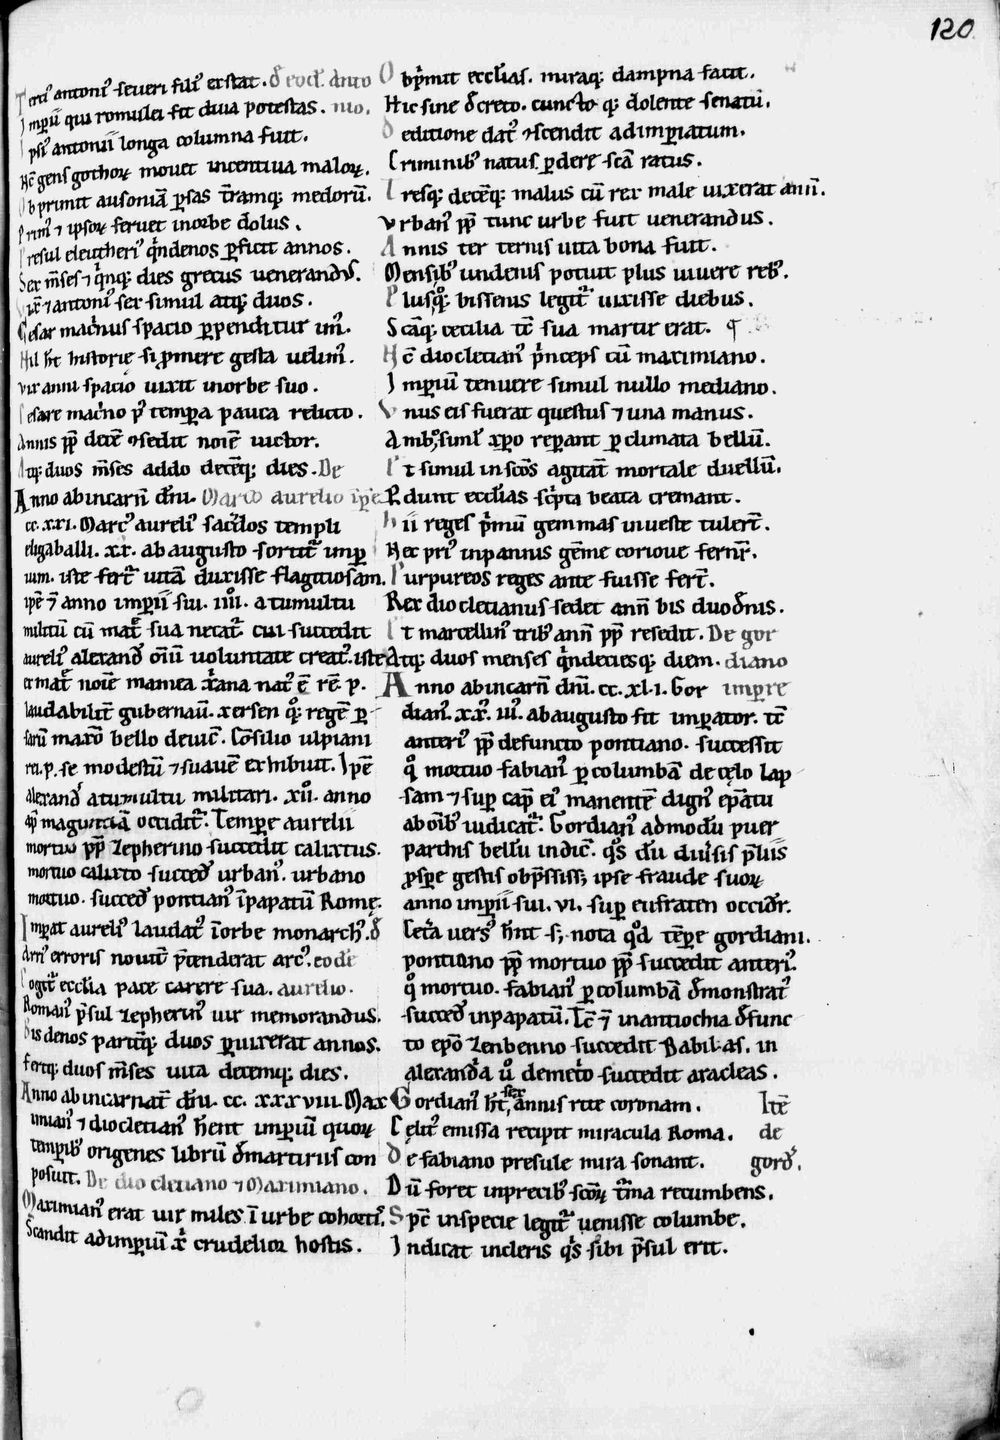 120
Terci᷒ antoni᷒ seueri fili᷒ exstat. d̄ eod̄. anto
Imp̄ii qui romulei fit diua potestas. nio.
Ipsi᷒ antonii longa columna fuit.
Hc̄ gens gothoꝝ mouet incentiua maloꝝ.
Obprimit ausoniā ꝑsas t̄ramq; medorū.
Prim᷒ ⁊ ipsoꝝ feruet inorbe dolus.
Presul eleutheri᷒ q̊ndenos ꝑficit annos.
Sex m̄ses ⁊ q̊nq; dies grecus uenerandus.
⁊ antoni᷒ sex simul atq; duos.
Cesar macrinus spacio ꝑpenditur uni᷒.
Nil hr̄ historie si p̄mere gesta uelim᷒.
Vix anni spacio uixit inorbe suo.
Cesare macrino p᷒ tempora pauca relicto.
Annis pp̄ decē ⁊sedit noīe uictor.
Atq; duos m̄ses addo decēq; dies. De
Anno ab incarn̄ dn̄i. Marco aurelio īp̄e
cc. xxi. Marc᷒ aureli᷒ sac̄dos templi
eligaballi. xx. ab augusto sortit᷑ imp̄
ium. iste fert᷑ uitā duxisse flagitiosam.
ip̄e ⁊ anno imp̄ii sui. iiii. a tumultu
militū cū mat̄ sua necat᷑. cui succedit
aureli᷒ alexand̄ oīu uoluntate creat᷒. iste
ex mat̄ noīe mamea xr̄ana nat᷒ ē rē p.
laudabilit̄ gubernau. xersen q᷒ regē ꝑ
sarū maxo bello deuic̄. Cōsilio ulpiani
rā. p. se modestū ⁊ suauē exhibuit. Ip̄e
alexand̄ atumultu militari. xii. anno
ap̄ magunciā occidit᷑. Tempore aurelii
mortuo pp̄ zepherino succedit calixtus.
mortuo calixto succed̄ urban᷒. urbano
mortuo. succed̄ pontian᷒ īpapatū Rome.
Imp̄at aureli᷒ laudat᷒ ī orbe monarch᷒. d̄
Arri᷒ erroris nouit̄ p̄tenderat arc᷒. eode
Cogit᷑ eccl̄ia pace carere sua. aurelio.
Roman᷒ p̄sul zepherin᷒ uir memorandus.
Bis denos parit̄q; duos ꝑuixerat annos.
Fertq; duos m̄ses uita decemq; dies.
Anno ab incarnat̄ dn̄i. cc. xxxviii. Max
imian᷒ ⁊ dioclecian᷒ hn̄t imp̄iū quoꝝ
temporib᷒ origenes librū d̄ martiriis con
posuit. De diocletiano ⁊ Maximiano.
Maximian᷒ erat uir miles ī urbe cohortis᷒.
Scandit adimp̄iū xr̄ crudelior hostis.
Obp̄mit eccl̄ias. miraq; dampna facit.
Hic sine d̄creto. cuncto q; dolente senatu.
d editione dat᷒ ⁊scendit adimp̄iatum.
Criminib᷒ natus ꝑdere sc̄a ratus.
Tresq; decēq; malus cū rex male uixerat anīi.
Vrban᷒ pp̄ tunc urbe fuit uenerandus.
Annis ter ternis uita bona fuit.
Mensib᷒ undenis potuit plus uiuere reb᷒.
Plusq̄; bissenis legit᷑ uixisse diebus.
Scāq; cecilia tē sua martir erat. ¶
Hc̄ dioclecian᷒ p̄nceps cū maximiano.
Imp̄iū tenuere simul nullo mediano.
Vnus eis fuerat questus ⁊ una manus.
Amb᷒; siml̄ xp̄o reparant ꝑ climata bellū.
Et simul in sc̄os agitāt mortale duellū.
Edunt eccl̄ias sc̄pta beata cremant.
hii reges p̄mū gemmas in ueste tulerr̄.
Nec pri᷒ inpannis gēme corioue fernr̄.
Purpureos reges ante fuisse fert̄.
Rex dioclecianus sedet ann̄ bis duod̄nis.
Et marcellin᷒ trib᷒ ann̄ pp̄ resedit. De gor
Atq; duos menses q̊ndeciesq; diem. diano
Anno ab incarn̄ dn̄i. cc. xl. i. Gor imp̄re
dian᷒. xx᷒. iii᷒. ab augusto fit imp̄ator. tē
anteri᷒ pp̄ defuncto pontiano. successit
q̊ mortuo fabian᷒ ꝑ columbā de cęlo lap
sam ⁊ sup̄ cap̄ ei᷒ manentē dign᷒ ep̄atu
ab oīb᷒ iudicat᷑. Gordian᷒ admodū puer
parthis bellū indic̄. q̊s dū diuisis p̄liis
ꝓspe gestis obp̄ssiss; ipse fraude suoꝝ
anno imp̄ii sui. vi. sup̄ eufraten occidr̄.
Cet̄a uers᷒ hn̄t s; nota q̊d tēpe gordiani.
pontiano pp̄ mortuo pp̄ succedit anteri᷒.
q̊ mortuo. fabian᷒ ꝑ columbā d̄monstrat᷒
succed̄ in papatū. Tē ⁊ in antiochia d̄func
to ep̄o zenbenno succedit Babilas. in
alexand̄a ū demetrio succedit aracleas.
Gordian᷒ hr̄ sex annis rite coronam. Itē
Celit᷒ emissa recipit miracula Roma. de
De fabiano presule mira sonant. gord̄.
Dū foret in precib᷒ sc̄oꝝ t̄ina recumbens.
Spc̄ in specie legit᷑ uenisse columbe.
Indicat in cleris q̊s sibi p̄sul erit.